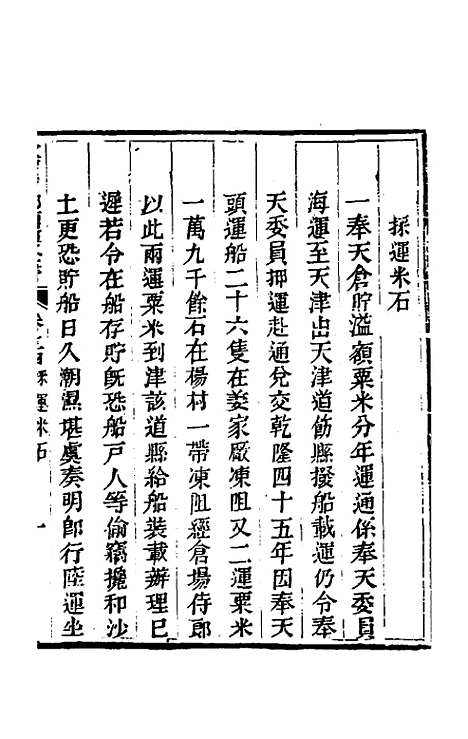 採運米石
一奉天倉貯溢額粟米分年運通係奉天委員
海運至天津出天津道飭縣撥船載運仍令奉
天委員押運赴通兌交乾隆四十五年因奉天
頭運船二十六隻在姜家廠凍阻又二運粟米
一萬九千餘石在楊村一帶凍阻經倉場侍郎
以此兩運粟米到津該道縣給船裝載辦理已
遲若令在船存貯旣恐船戸人等偷竊攙和沙
土更恐貯船日久潮濕堪虞奏明卽行陸運坐
採運米石 一